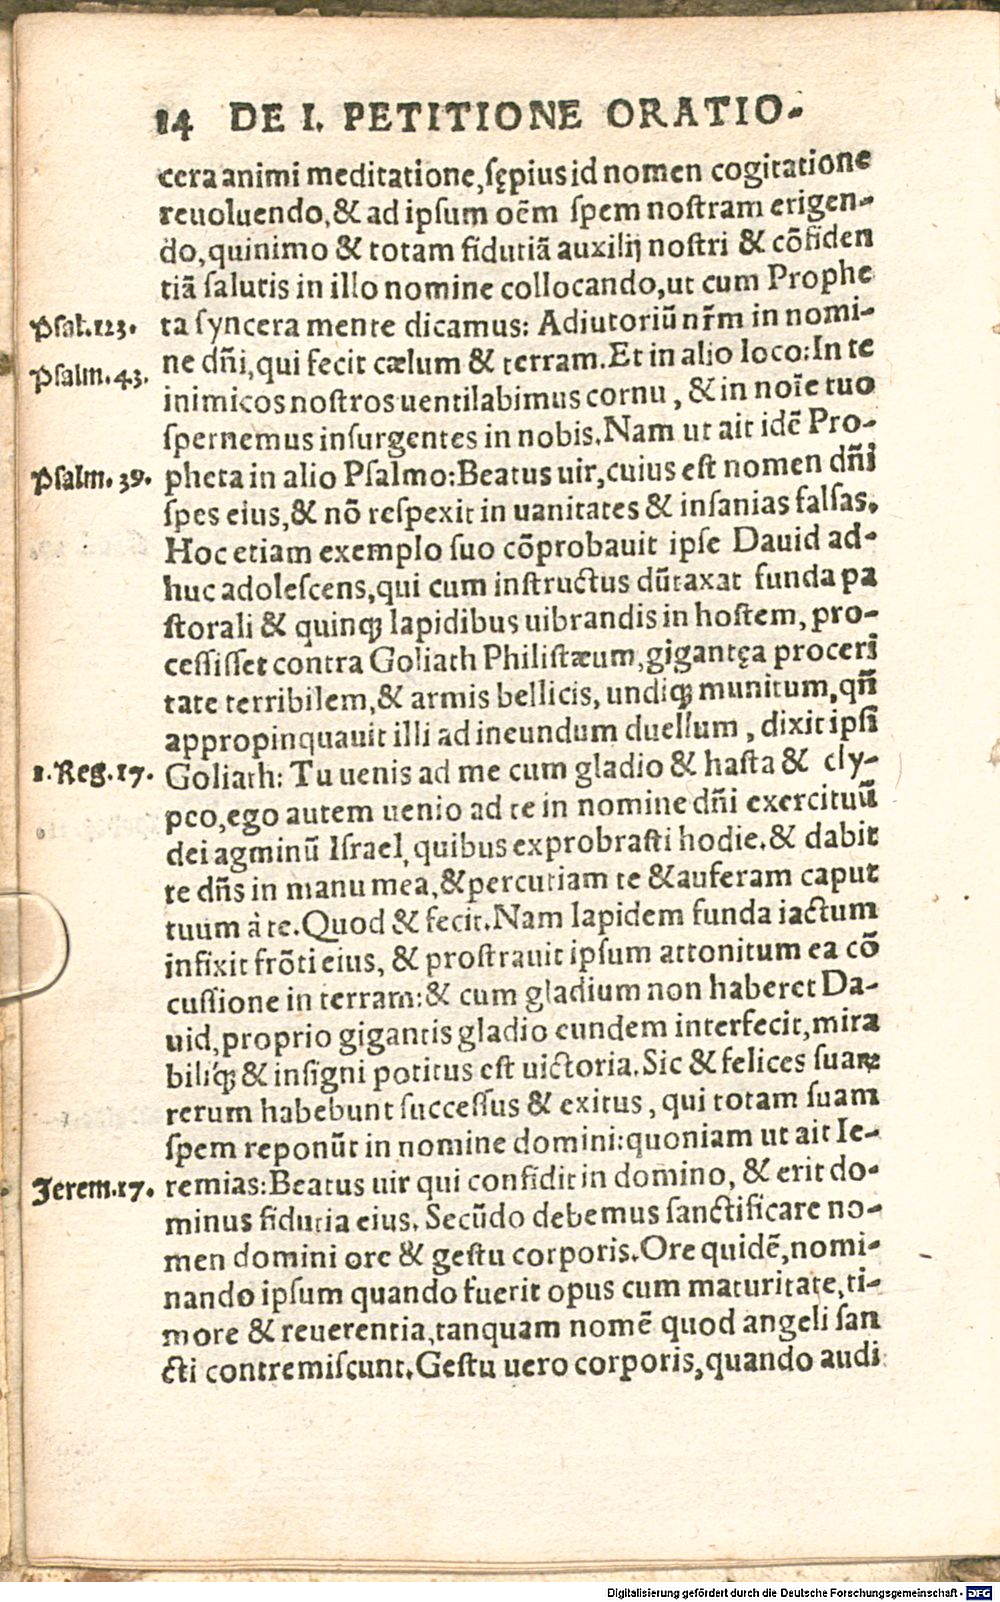 14 DE I. PETITIONE ORATIO-
cera animi meditatione, sępius id nomen cogitatione
reuoluendo, & ad ipsum oēm spem nostram erigen-
do, quinimo & totam fidutiā auxilij nostri & cōfiden
tiā salutis in illo nomine collocando, ut cum Prophe
Psal. 123. ta syncera mente dicamus: Adiutoriū nr̄m in nomi-
ne dñi, qui fecit cælum & terram. Et in alio loco: In te
Psalm. 43. inimicos nostros uentilabimus cornu, & in noīe tuo
spernemus insurgentes in nobis. Nam ut ait idē Pro-
Psalm. 39. pheta in alio Psalmo: Beatus uir, cuius est nomen dñi
spes eius, & nō respexit in uanitates & insanias falsas.
Hoc etiam exemplo suo cōprobauit ipse Dauid ad-
huc adolescens, qui cum instructus dūtaxat funda pa
storali & quinq; lapidibus uibrandis in hostem, pro-
cessisset contra Goliath Philistæum, gigantęa proceri
tate terribilem, & armis bellicis, undiq; munitum, qñ
appropinquauit illi ad ineundum duellum, dixit ipsi
1. Reg. 17. Goliath: Tu uenis ad me cum gladio & hasta & cly-
peo, ego autem uenio ad te in nomine dñi exercituū
dei agminū Israel, quibus exprobrasti hodie. & dabit
te dñs in manu mea, & percutiam te & auferam caput
tuum à te. Quod & fecit. Nam lapidem funda iactum
infixit frōti eius, & prostrauit ipsum attonitum ea cō
cussione in terram: & cum gladium non haberet Da-
uid, proprio gigantis gladio eundem interfecit, mira
biliq́; & insigni potitus est uictoria. Sic & felices suarꝝ
rerum habebunt successus & exitus, qui totam suam
spem reponūt in nomine domini: quoniam ut ait Ie-
Jerem. 17. remias: Beatus uir qui confidit in domino, & erit do-
minus fiducia eius. Secūdo debemus sanctificare no-
men domini ore & gestu corporis. Ore quidē, nomi-
nando ipsum quando fuerit opus cum maturitate, ti-
more & reuerentia, tanquam nomē quod angeli san
cti contremiscunt. Gestu uero corporis, quando audi
Digitalisierung gefördert durch die Deutsche Forschungsgemeinschaft - DFG